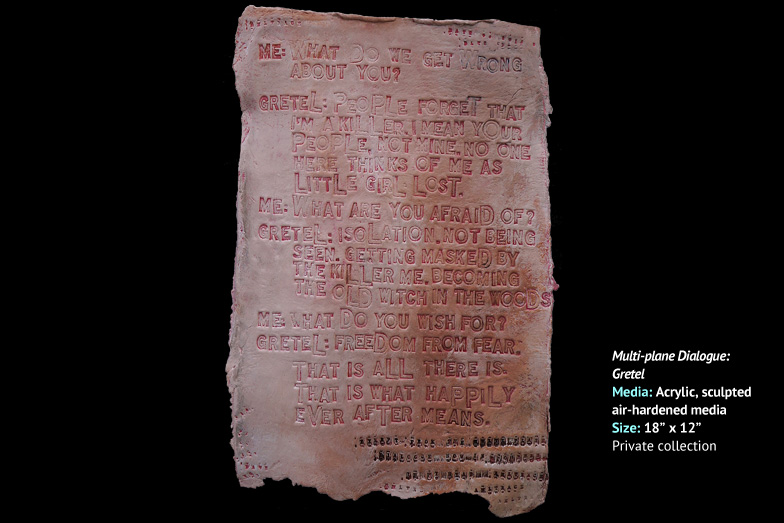 ME: WHAT DO WE GET WRONG
ABOUT YOU?
GRETEL: PEOPLE FORGET THAT
I'M A KILLER. I MEAN YOUR
PEOPLE, NOT MINE. NO ONE
HERE THINKS OF ME AS
LITTLE GIRL LOST.
ME: WHAT ARE YOU AFRAID OF?
GRETEL: ISOLATION. NOT BEING
SEEN. GETTING MASKED BY
THE KILLER ME. BECOMING
THE OLD WITCH IN THE WOODS
ME: WHAT DO YOU WISH FOR?
GRETEL: FREEDOM FROM FEAR.
THAT IS ALL THERE IS.
THAT IS WHAT HAPPILY
EVER AFTER MEANS.
Multi-plane Dialogue:
Gretel
Media: Acrylic, sculpted
air-hardened media
Size: 18” x 12”
Private collection